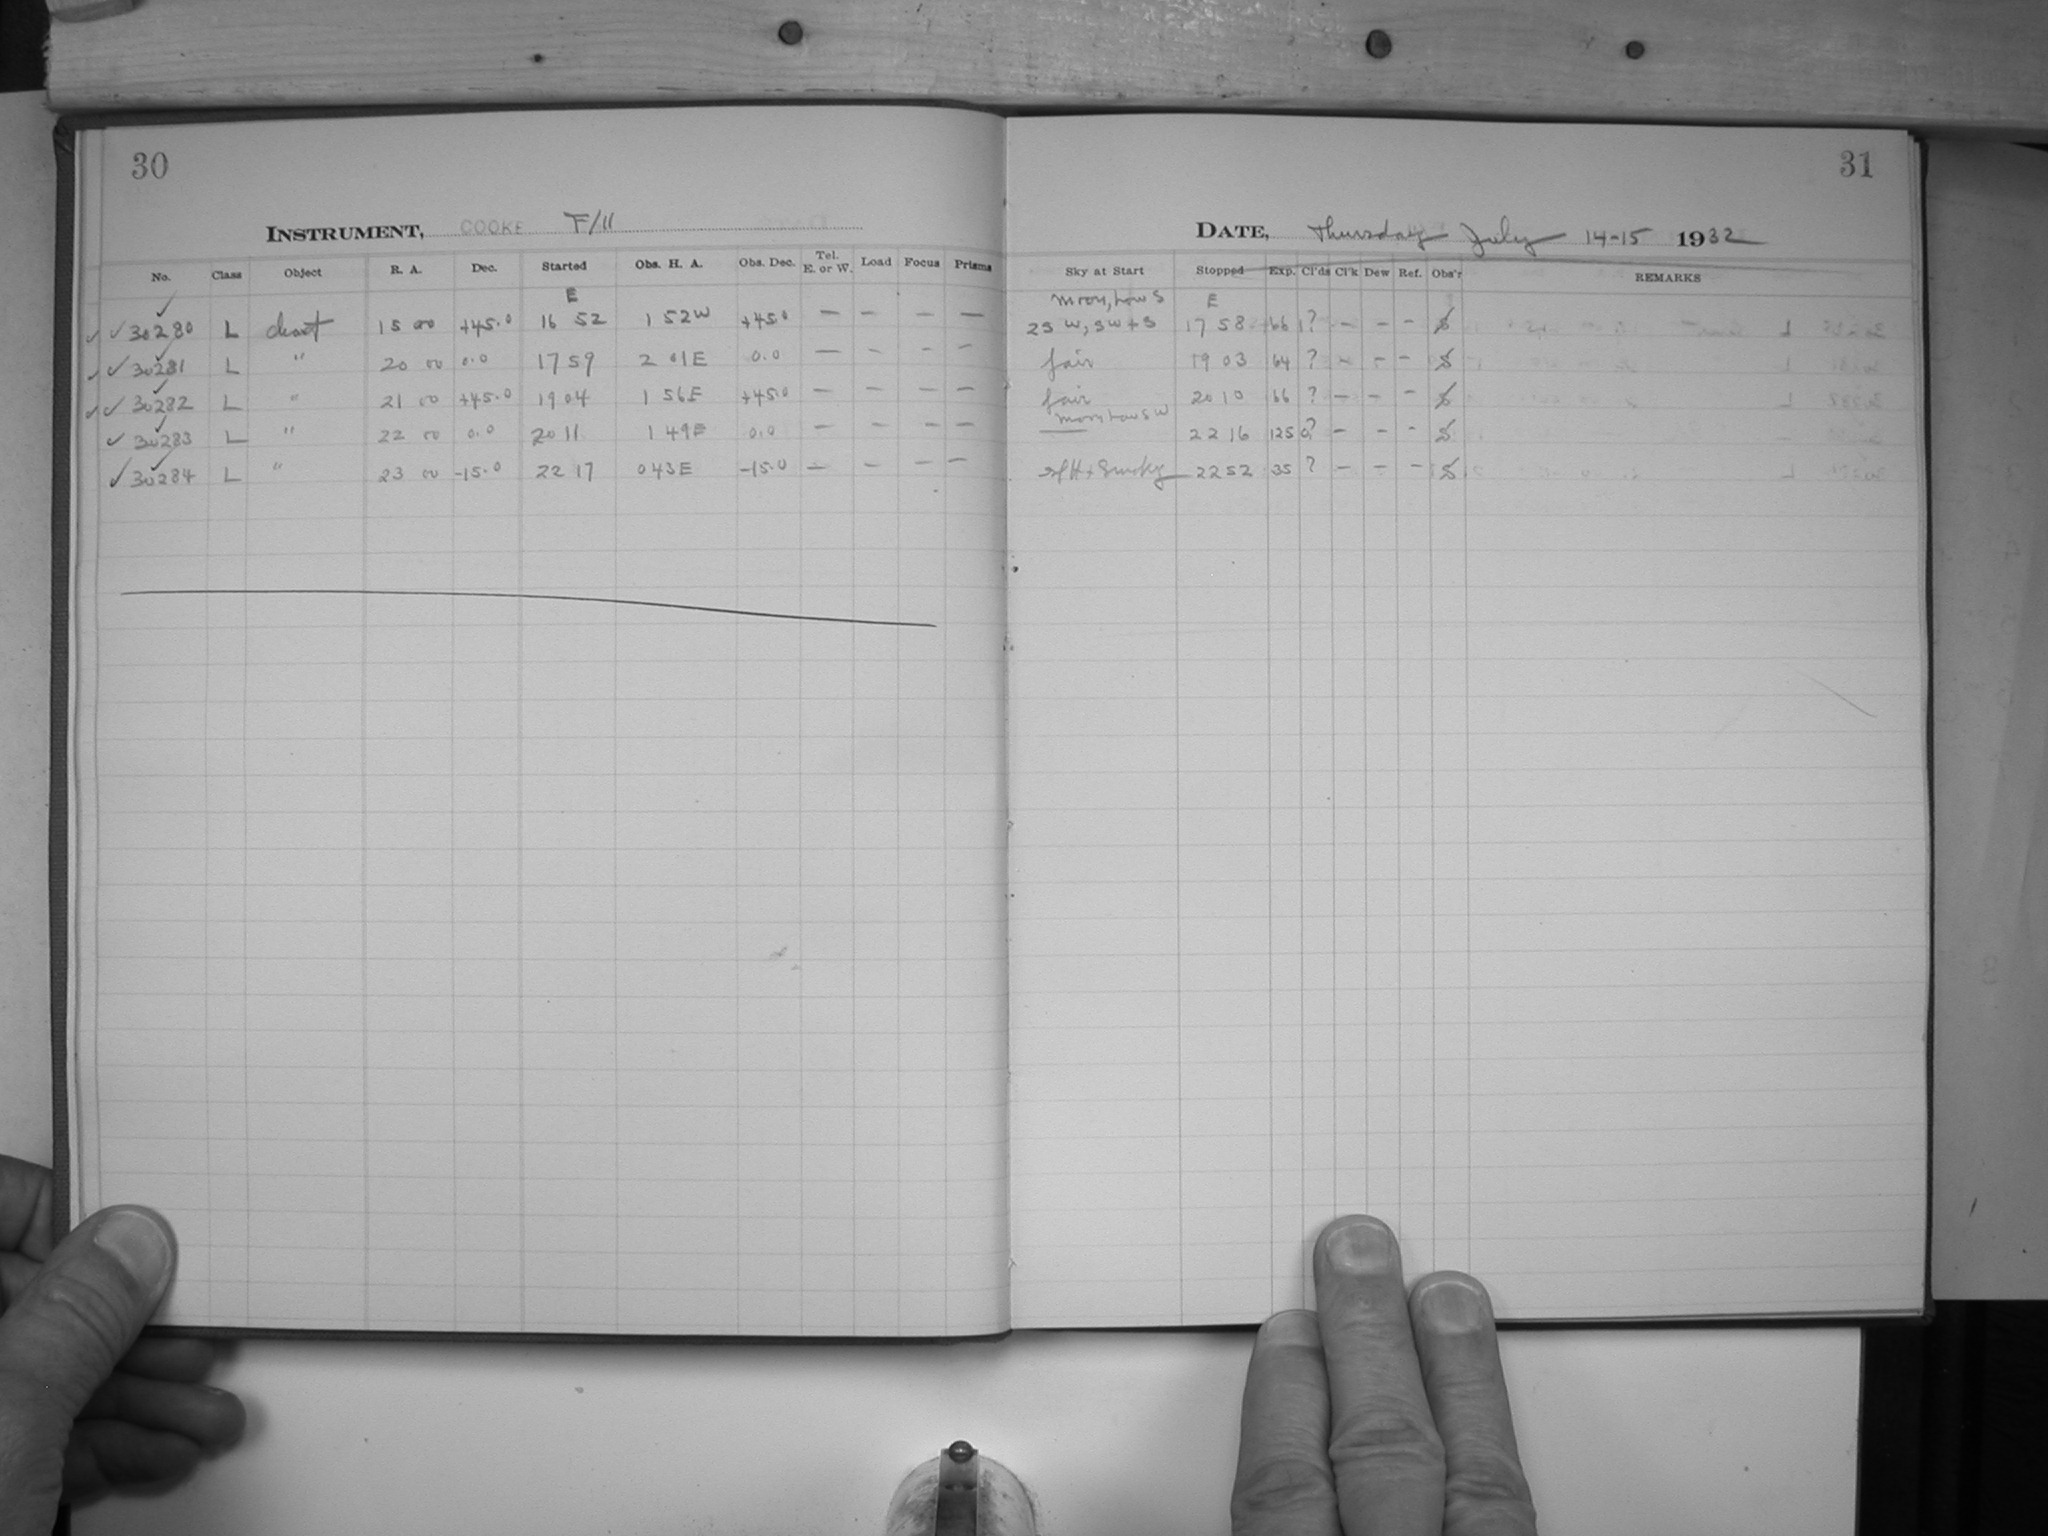 30
INSTRUMENT, COOKE F/11
No. Class Object R. A. Dec. Started Obs. H. A. Obs. Dec. Tel. E. or W. Load Focus Prisms
E
30280 L chart 15 00 +45.0 16 52 1 52W +45.0 — — — —
30281 L " 20 00 0.0 17 59 2 01E 0.0 — — — —
30282 L " 21 00 +45.0 19 04 1 56E +45.0 — — — —
30283 L " 22 00 0.0 20 11 1 49E 0.0 — — — —
30284 L " 23 00 -15.0 22 17 0 43E -15.0 — — — —
31
DATE, Thursday July 14-15 1932
Sky at Start Stopped Exp. Cl'ds Cl'k Dew Ref. Obs'r REMARKS
moon, low S E
W, SW + S 17 58 66 ? — — —
fair 19 03 64 ? — — —
fair 20 10 66 ? — — —
moon low SW
22 16 125 ? — — —
+ Smoky 22 52 35 ? — — —